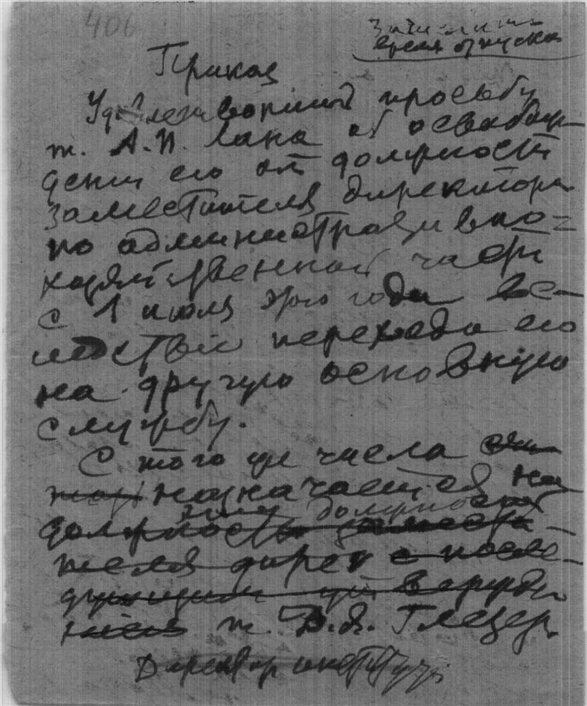 406
время отпуска
Приказ
Удовлетворить просьбу
т. А.И. Лана об освобож-
дении его от должности
заместителя директора
по административно-
хозяйственной части
с 1 июля этого года вс-
ледствие перехода его
на другую основную
службу.
С того же числа
назначается на
эту должность
должность замести-
теля дирек с после-
дующим утвержде-
нием т. Глезер.
Директор института